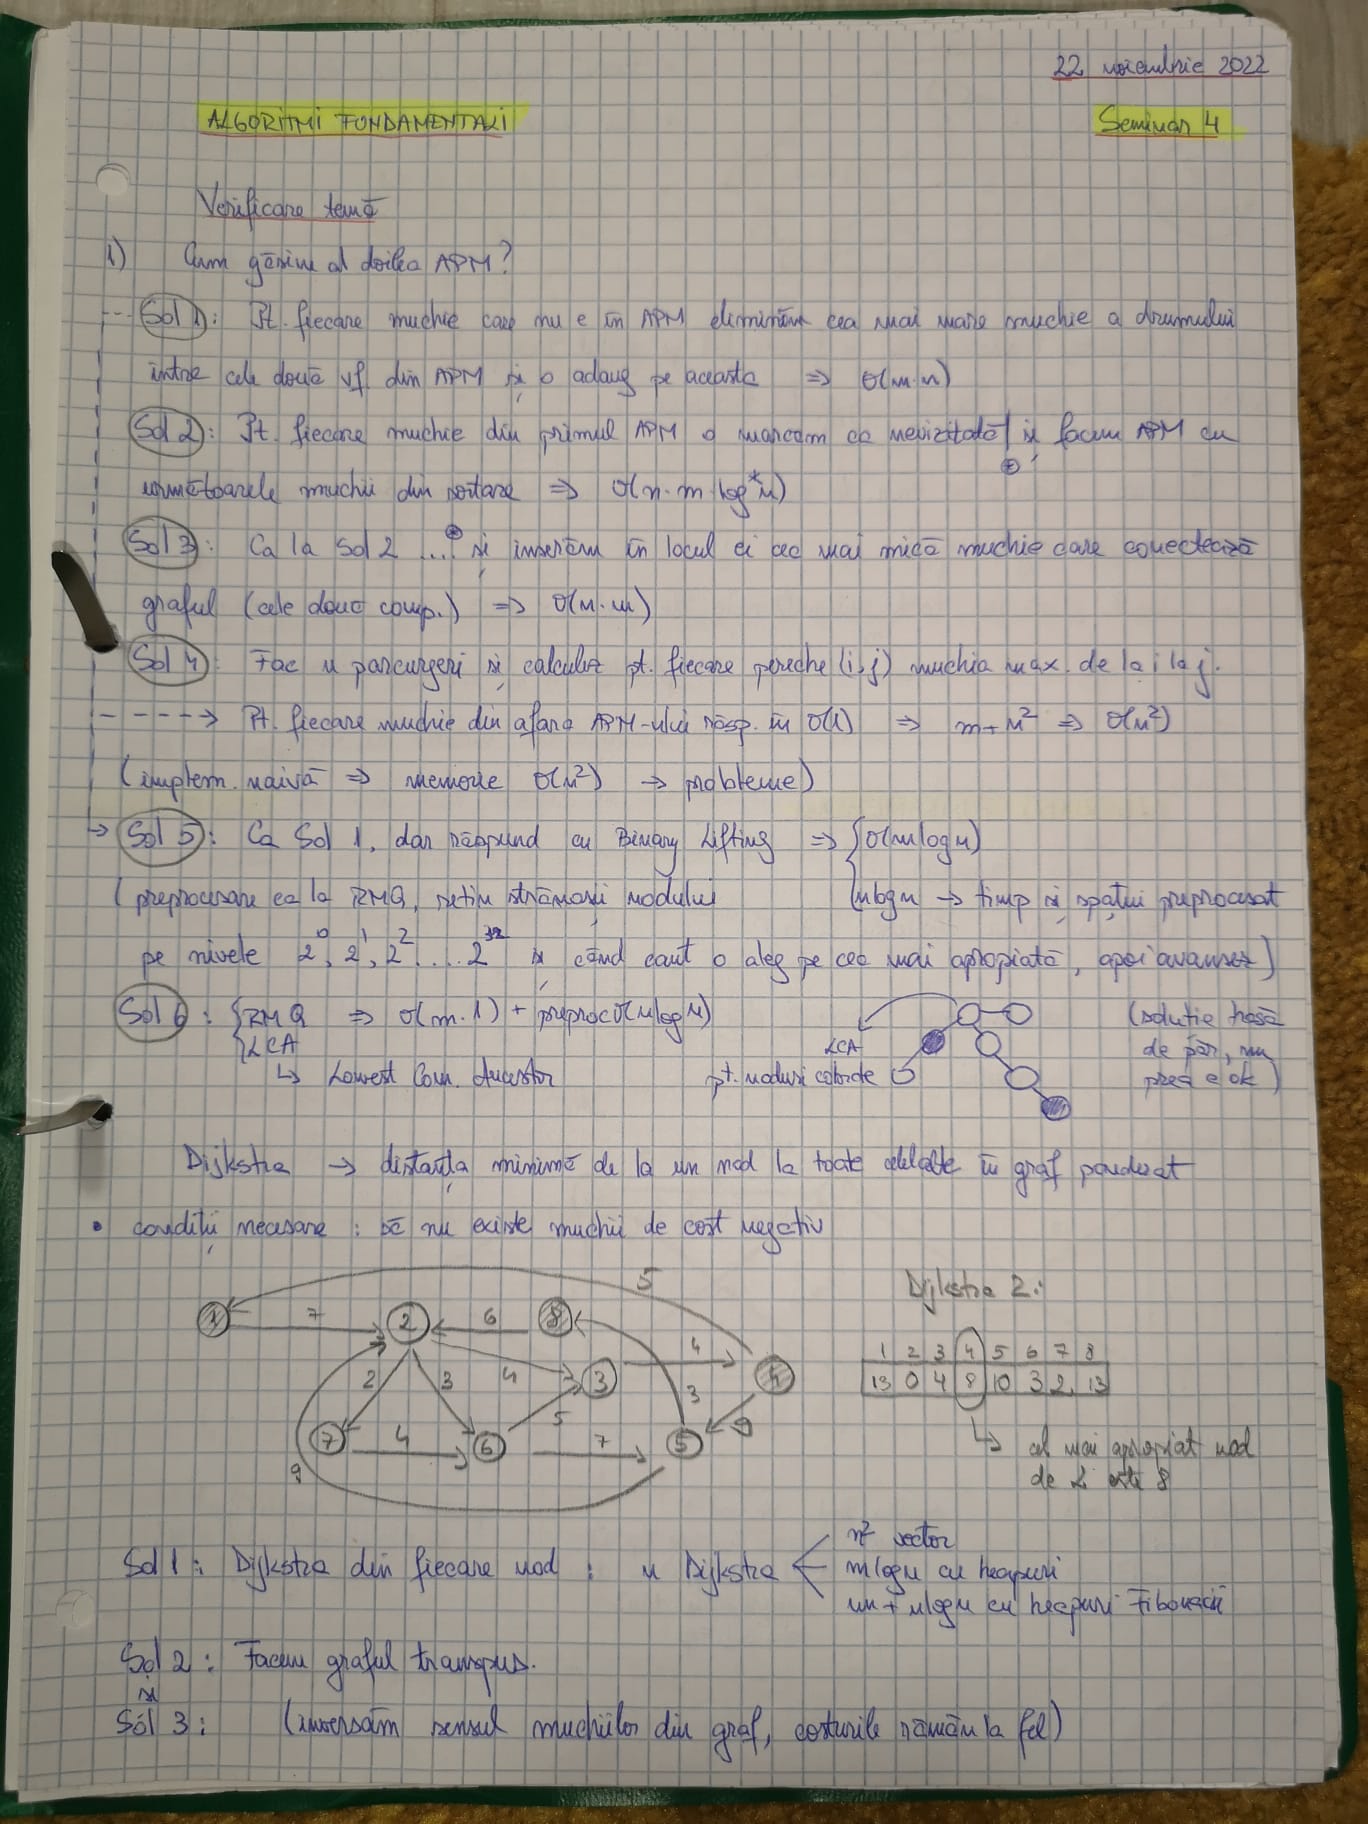 22 noiembrie 2022
ALGORITMI FUNDAMENTALI
Seminar 4
Verificare temă
1) Cum găsim al doilea APM?
Sol 1: Pt. fiecare muchie care nu e în APM eliminăm cea mai mare muchie a drumului
între cele două vf. din APM și o adaug pe aceasta => O(m·n)
Sol 2: Pt. fiecare muchie din primul APM o marcam ca nevizitată și facem APM cu
următoarele muchii din sortare => O(n·m·log*n)
Sol 3: Ca la Sol 2 ... și inserăm în locul ei cea mai mică muchie care conectează
graful (cele două comp.) => O(n·m)
Sol 4: Fac n parcurgeri și calculez pt. fiecare pereche (i,j) muchia max. de la i la j.
----> Pt. fiecare muchie din afara APM-ului răsp. în O(1) => m+n² => O(n²)
(implem. naivă => memorie O(n²) -> probleme)
-> Sol 5: Ca Sol 1, dar răspund cu Binary Lifting => { O(mlogn)
(preprocesare ca la RMQ, rețin strămoșii nodului nlogn -> timp și spațiu preprocesat
pe nivele 2⁰, 2¹, 2² ... 2³² și când caut o aleg pe cea mai apropiată, apoi avansez)
Sol 6: { RMQ => O(m·1) + preproc O(nlogn) (soluție trasă
LCA LCA de păr, nu
↳ Lowest Com. Ancestor pt. noduri colorate prea e ok)
Dijkstra -> distanța minimă de la un nod la toate celelalte în graf ponderat
• condiții necesare: să nu existe muchii de cost negativ
5
Dijkstra 2:
1 7 2 6 8
4 3 4 4
1 2 3 4 5 6 7 8
13 0 4 8 10 3 2 13
2 3 5 3 9
7 4 6 7 5
9
↳ cel mai apropiat nod
de 2 este 8
Sol 1: Dijkstra din fiecare nod: n Dijkstra < n² vector
mlogn cu heapuri
m + nlogn cu heapuri Fibonacci
Sol 2: Facem graful transpus.
și
Sol 3: (inversăm sensul muchiilor din graf, costurile rămân la fel)